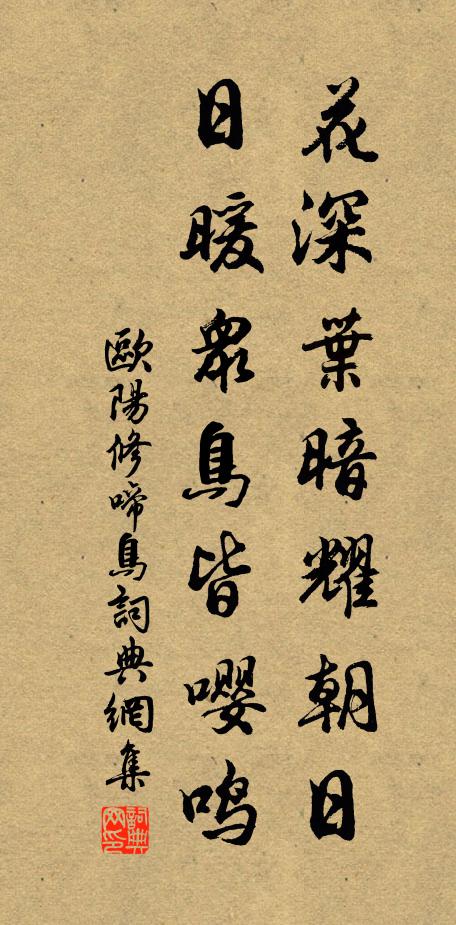 花深葉暗耀朝日
日暖衆鳥皆嚶鳴
歐陽修啼鳥詞典網集
詞典网印